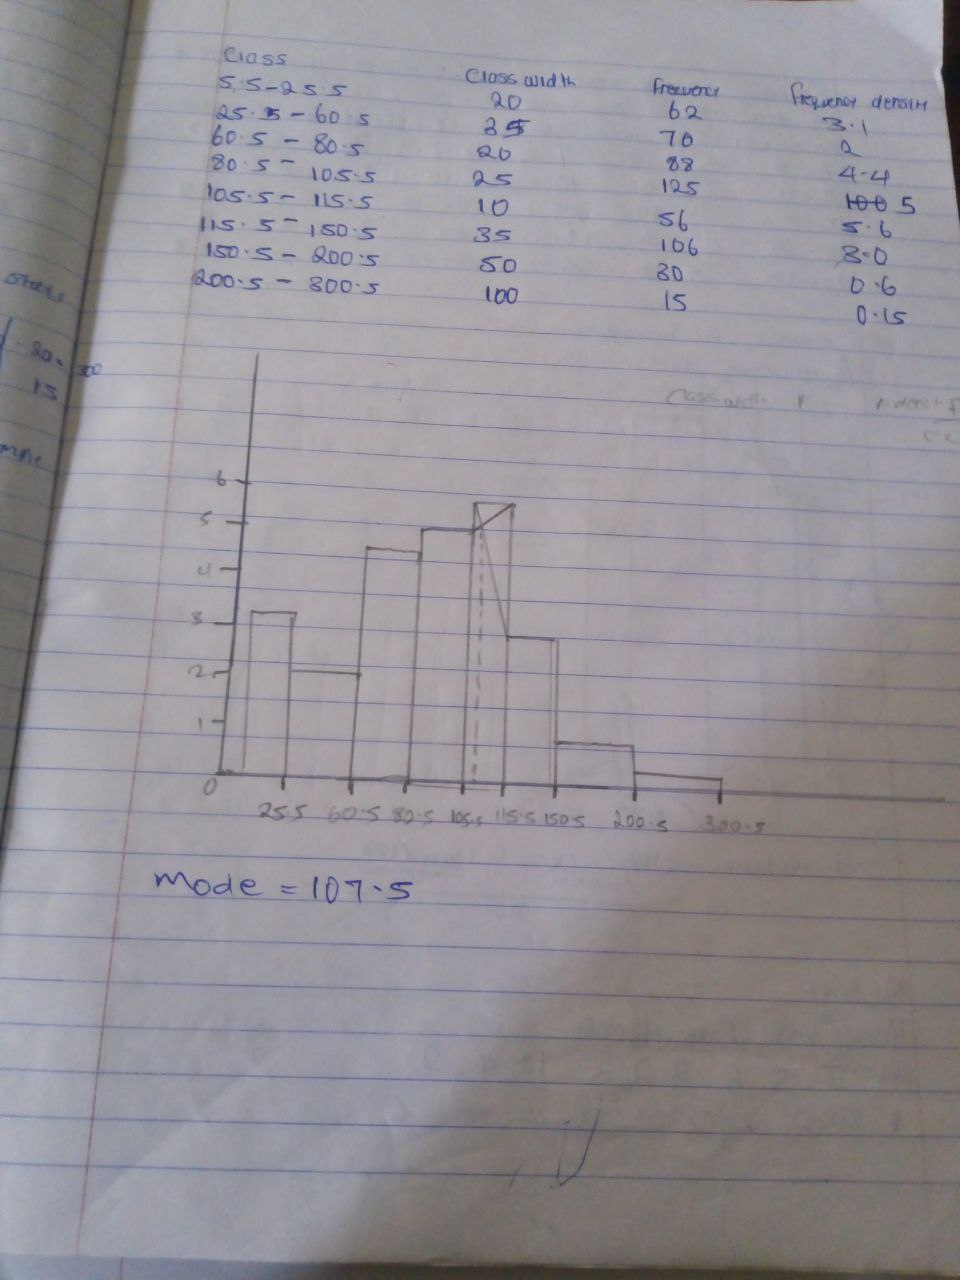 Class Class width Frequency Frequency density
5.5-25.5 20 62 3.1
25.5-60.5 35 70 2
60.5-80.5 20 88 4.4
80.5-105.5 25 125 100 5
105.5-115.5 10 56 5.6
115.5-150.5 35 106 3.0
150.5-200.5 50 30 0.6
200.5-300.5 100 15 0.15
300
15
Class width
6
5
4
3
2
1
0
25.5 60.5 80.5 105.5 115.5 150.5 200.5 300.5
Mode = 107.5